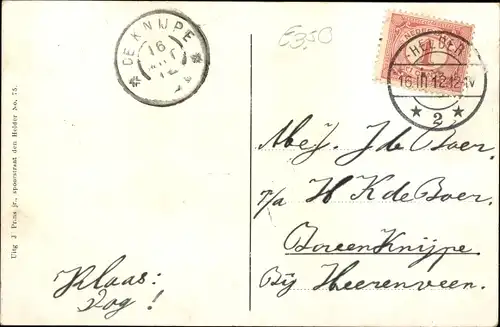 DE KNIJPE
16
12
E3,50
HELDER
16.III.12.12-1V
2
Mej. J de Boer,
p/a H K de Boer.
Boven Knijpe
Bij Heerenveen.
Klaas:
Dog!
Uitg J Prins jr., spoorstraat den Helder No. 75.